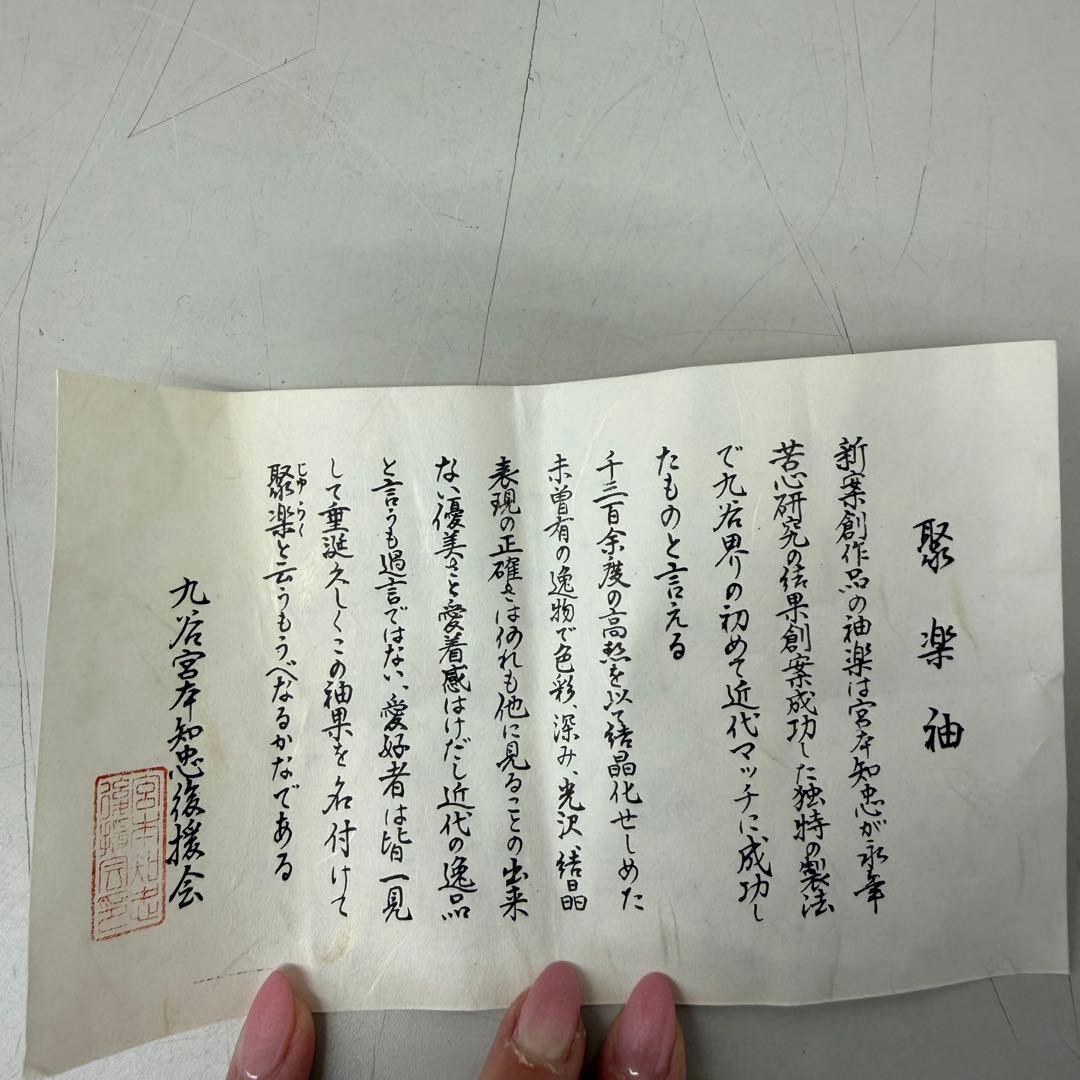 聚楽釉
新案創作品の釉楽は宮本知忠が永年
苦心研究の結果創案成功した独特の製法
で九谷界の初めて近代マッチに成功し
たものと言える
千三百余度の高熱を以て結晶化せしめた
未曽有の逸物で色彩、深み、光沢、結晶
表現の正確さは何れも他に見ることの出来
ない優美さと愛着感はけだし近代の逸品
と言うも過言ではない、愛好者は皆一見
して垂涎久しくこの釉果を名付けて
聚楽と云うもうべなるかなである
じゅらく
九谷宮本知忠後援会
宮本知忠
後援会印